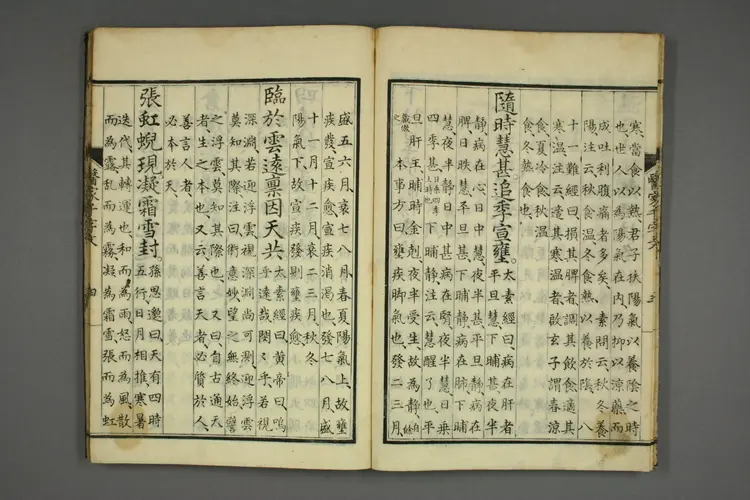 寒、當食以熱、君子扶陽氣以養陰之時
也、世人以為陽氣在内、乃抑以涼藥、而
成吐利腹痛者多矣、素問云、秋冬養
陽、注云、秋食温、冬食熱、以養於陰、八
十一難經曰、損其脾者、調其飲食、適其
寒温、注云、適其寒温者、啟玄子謂、春涼
食、夏冷食、秋温
食、冬熱食也、
隨時慧甚追季宣壅。太素經曰、病在肝者、
平旦慧、下晡甚、夜半
靜、病在心、日中慧、夜半甚、平旦靜、病在
脾、日昳慧、平旦甚、下晡靜、病在肺、下晡
慧、夜半靜、日中甚、病在腎、夜半慧、日乗
四季甚、下晡靜、注云、慧、醒了也、平
旦、肝王、晡時金剋、夜半受生、故為靜、自餘
倣之 本事方曰、壅疾脚氣也、發二三月、
盛五六月、衰七八月、春夏陽氣上、故壅
疾發、宣疾愈、宣疾消渇也、發七八月、盛
十一月十二月、衰二三月、秋冬
陽氣下、故宣疾發則壅疾愈、
臨於雲遠稟因天共 太素經曰、黄帝曰、嗚
乎遠哉、閔閔乎、若視
深淵、若迎浮雲、視深淵尚可測、迎浮雲
莫知其際、注曰、術意妙望之無終始、譬
之浮雲莫知其際也、又曰、自古通天
者、生之本也、又云、善言天者、必質於人、
善言人者、
必本於天、
張虹蜺現凝霜雪封。孫思邈曰、天有四時
五行、日月相推、寒暑
迭代、其轉運也、和而為雨、怒而為風、散
而為露、亂而為霧、凝為霜雪、張而為虹
四